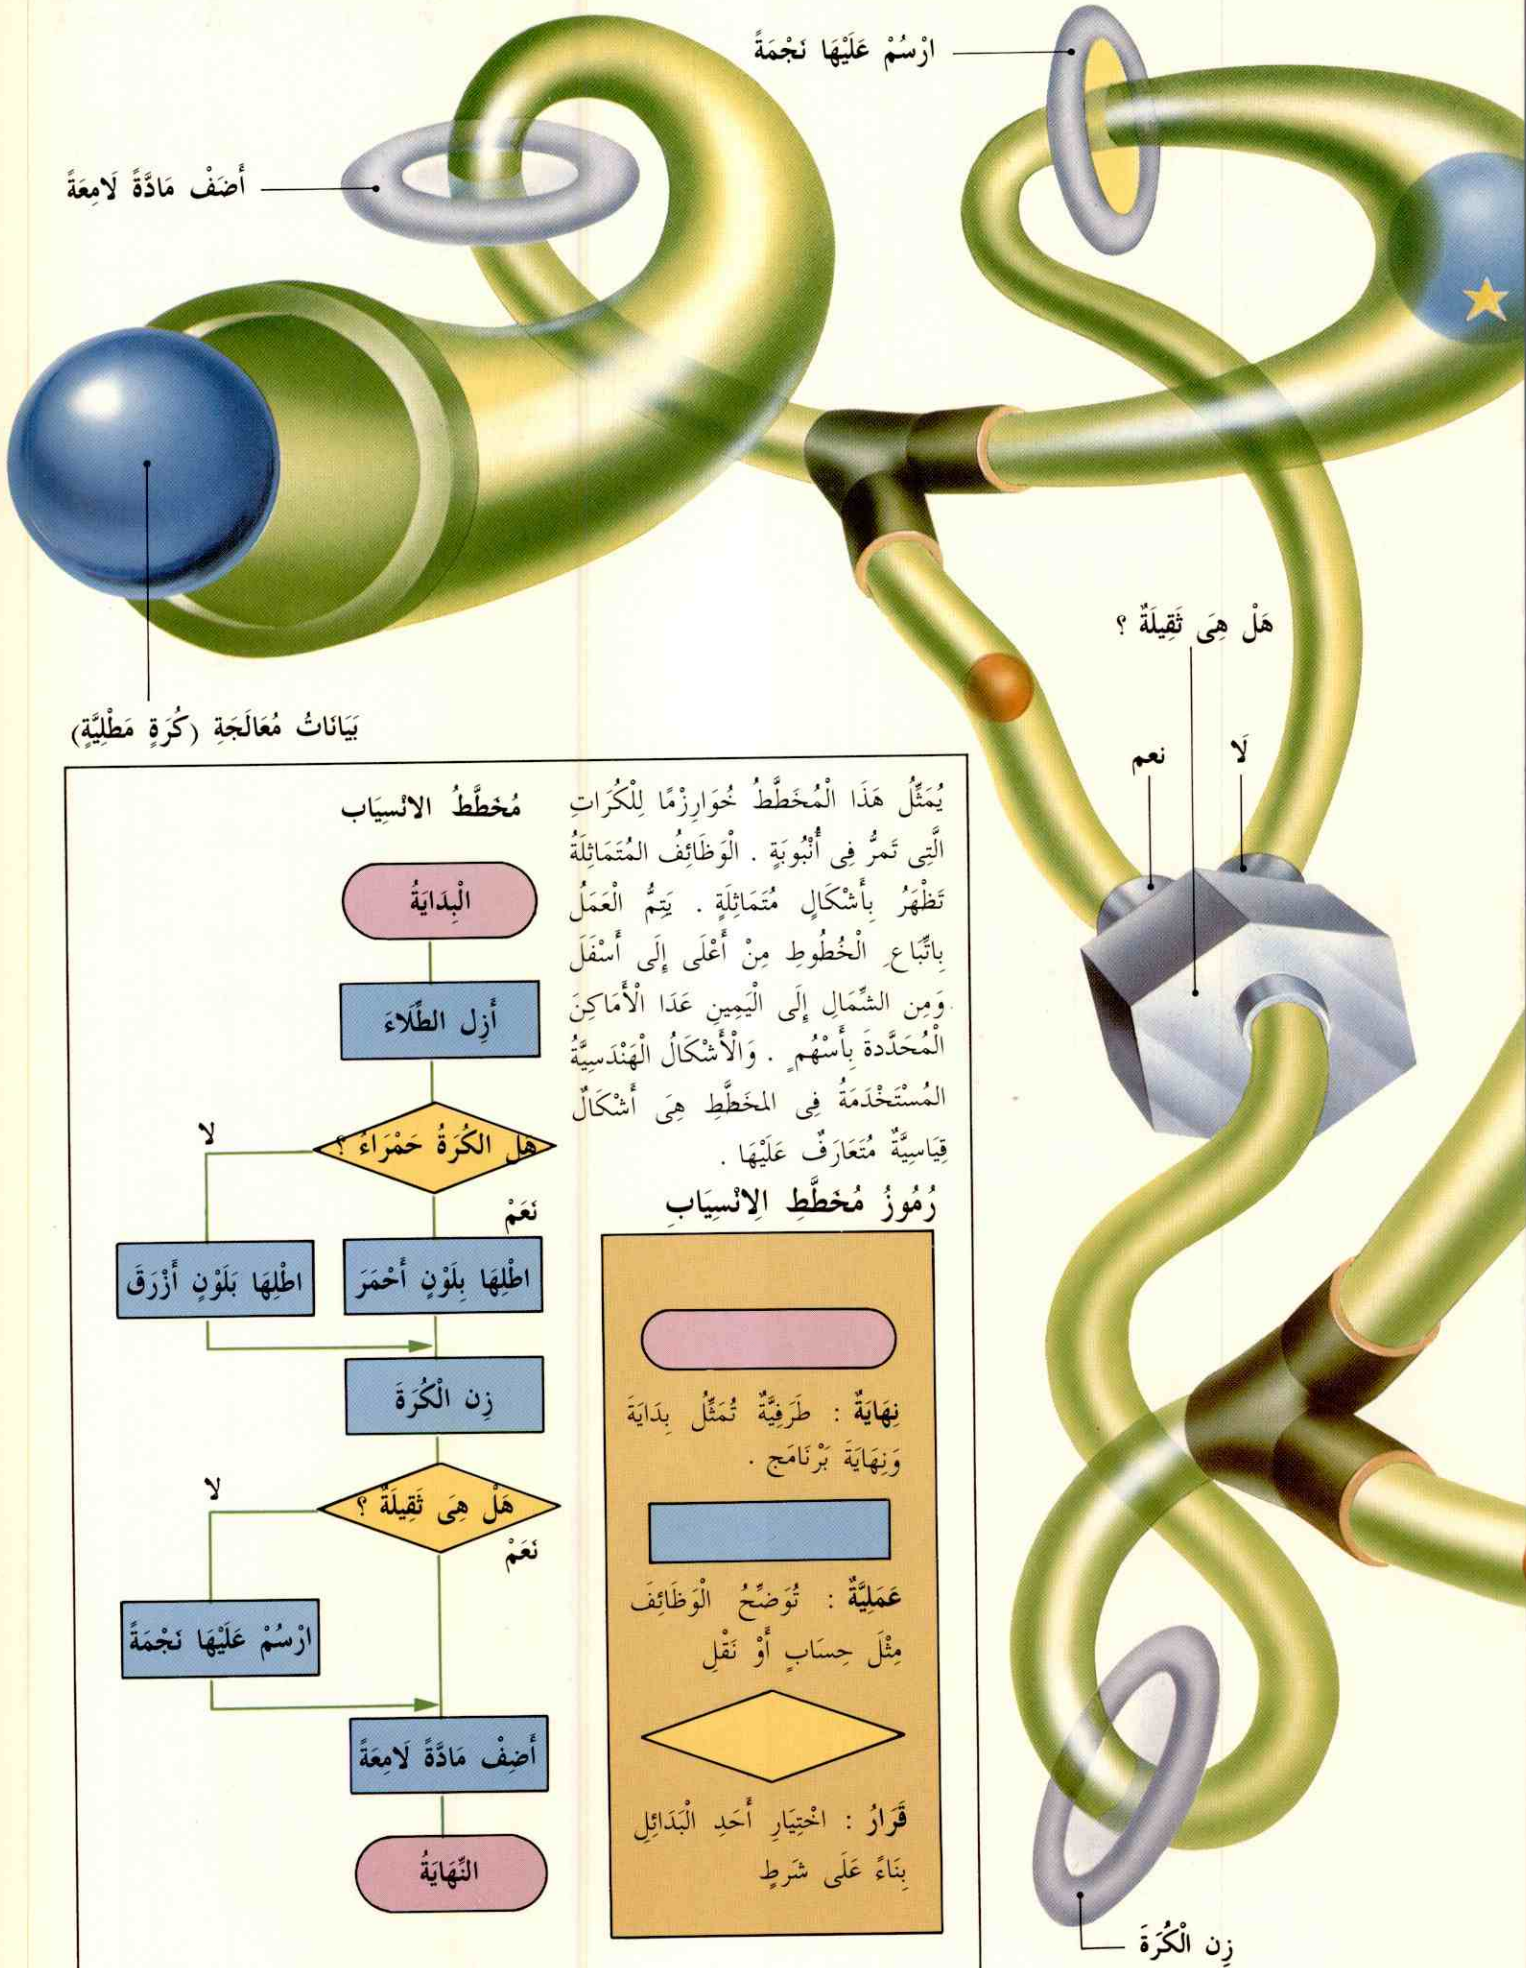 ارْسُمْ عَلَيْهَا نَجْمَةً
أَضَفْ مَادَّةً لَامِعَةً
هَلْ هِىَ ثَقِيلَةٌ ؟
لَا
نعم
بَيَانَاتُ مُعَالَجَةِ (كُرَةٍ مَطْلِيَّةٍ)
يُمَثِّلُ هَذَا الْمُخَطَّطُ خُوَارِزْمًا لِلْكُرَاتِ
الَّتِى تَمرُّ فِى أُنْبُوبَةٍ . الْوَظَائِفُ المُتَمَاثِلَةُ
تَظْهَرُ بِأَشْكَالٍ مُتَمَاثِلَةٍ . يَتِمُّ الْعَمَلُ
بِاتِّبَاعِ الْخُطُوطِ مِنْ أَعْلَى إِلَى أَسْفَلَ
وَمِن الشِّمَالِ إِلَى الْيَمِينِ عَدَا الْأَمَاكِنَ
الْمُحَدَّدةَ بِأَسْهُمٍ . وَالْأَشْكَالُ الْهَنْدَسِيَّةُ
المُسْتَخْدَمَةُ فِى المخَطَّطِ هِىَ أَشْكَالٌ
قِيَاسِيَّةٌ مُتَعَارَفٌ عَلَيْهَا .
رُمُوزُ مُخَطَّطِ الِانْسِيَابِ
نِهَايَةٌ : طَرَفِيَّةٌ تُمَثِّلُ بِدَايَةَ
وَنِهَايَةَ بَرْنَامَج .
عَمَلِيَّةٌ : تُوَضِّحُ الْوَظَائِفَ
مِثْلَ حِسَابٍ أَوْ نَقْلِ
قَرَارُ : اخْتِيَارِ أَحَدِ الْبَدَائِلِ
بِنَاءً عَلَى شَرَطٍ
مُخَطَّطُ الانْسِيَاب
الْبِدَايَةُ
أَزِل الطِّلَاءَ
هَل الكُرَةُ حَمْرَاءُ ؟
لا
نَعَمْ
اطْلِهَا بِلَوْنٍ أَحْمَرَ
اطْلِهَا بَلَوْنٍ أَزْرَقَ
زِن الْكُرَةَ
هَلْ هِىَ ثَقِيلَةٌ ؟
لا
نَعَمْ
ارْسُمْ عَلَيْهَا نَجْمَةً
أَضِفْ مَادَّةً لَامِعَةً
النِّهَايَةُ
زِن الْكُرَةَ